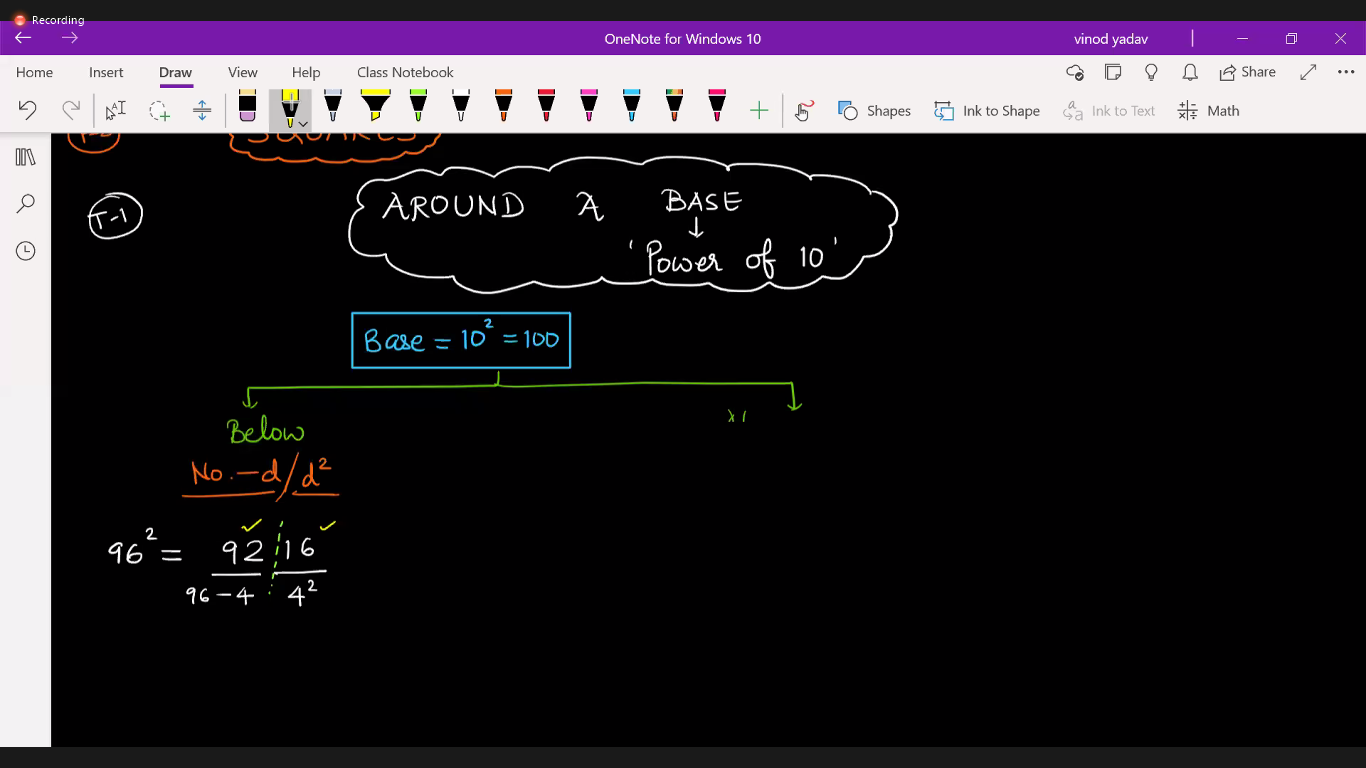 Recording
OneNote for Windows 10
vinod yadav
Home Insert Draw View Help Class Notebook
Share
Shapes Ink to Shape Ink to Text Math
SQUARES
T-1
AROUND A BASE
'Power of 10'
Base = 10² = 100
Below
No. - d / d²
96² = 92 16
96 - 4 4²